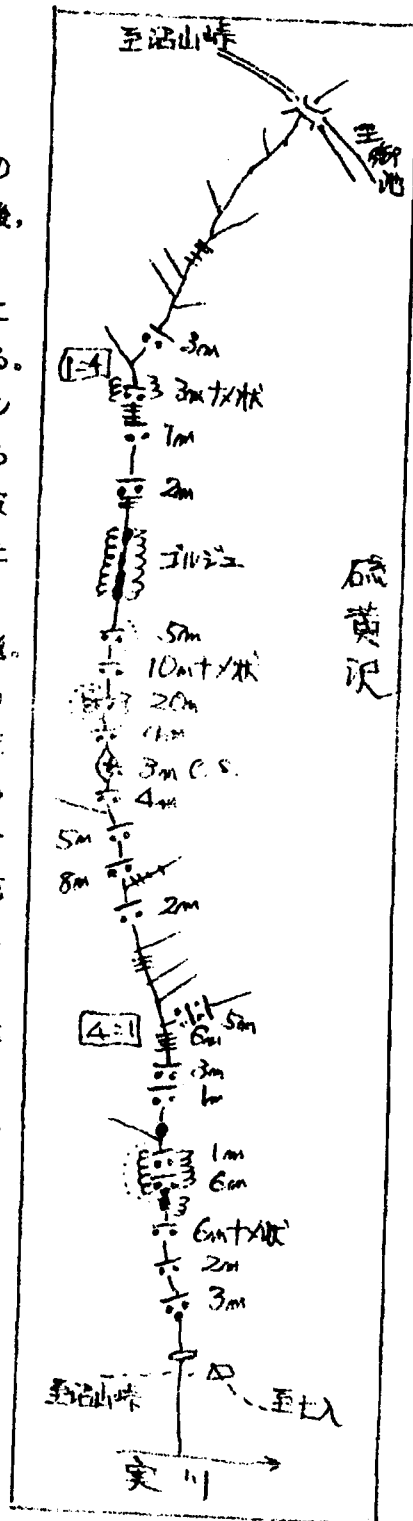 至沼山峠
至御池
3m
1:4
3mナメ状
7m
2m
ゴルジュ
硫黄沢
5m
10mナメ状
20m
3m C.S.
4m
5m
8m
2m
4:1
5m
6m
3m
1m
1m
6m
6mナメ状
2m
3m
至沼山峠
至七入
実川